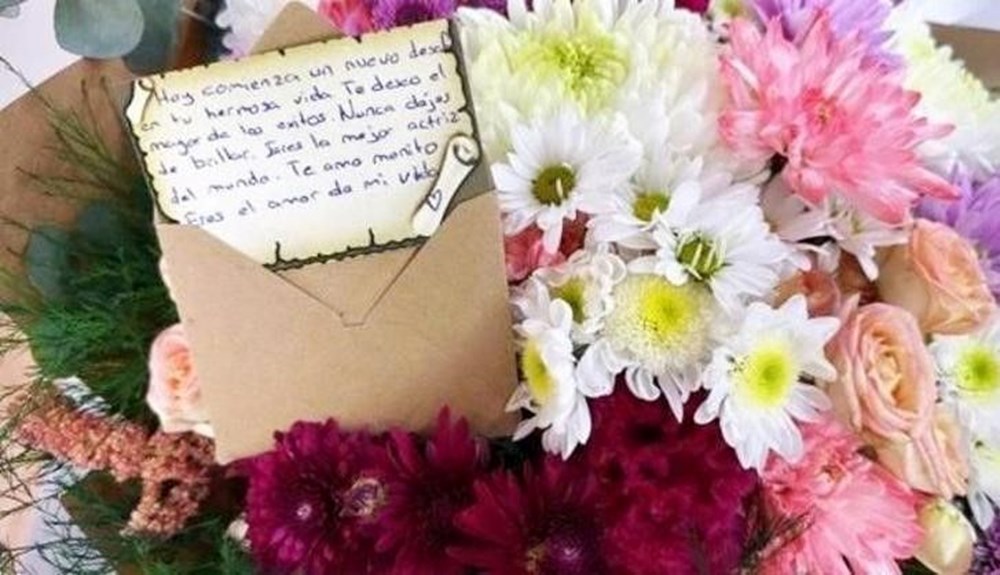 Hoy comienza un nuevo desaf
en tu hermosa vida Te deseo el
mayor de los exitos. Nunca dejes
de brillar. Eres la mejor actriz
del mundo. Te amo monito
Eres el amor de mi vida